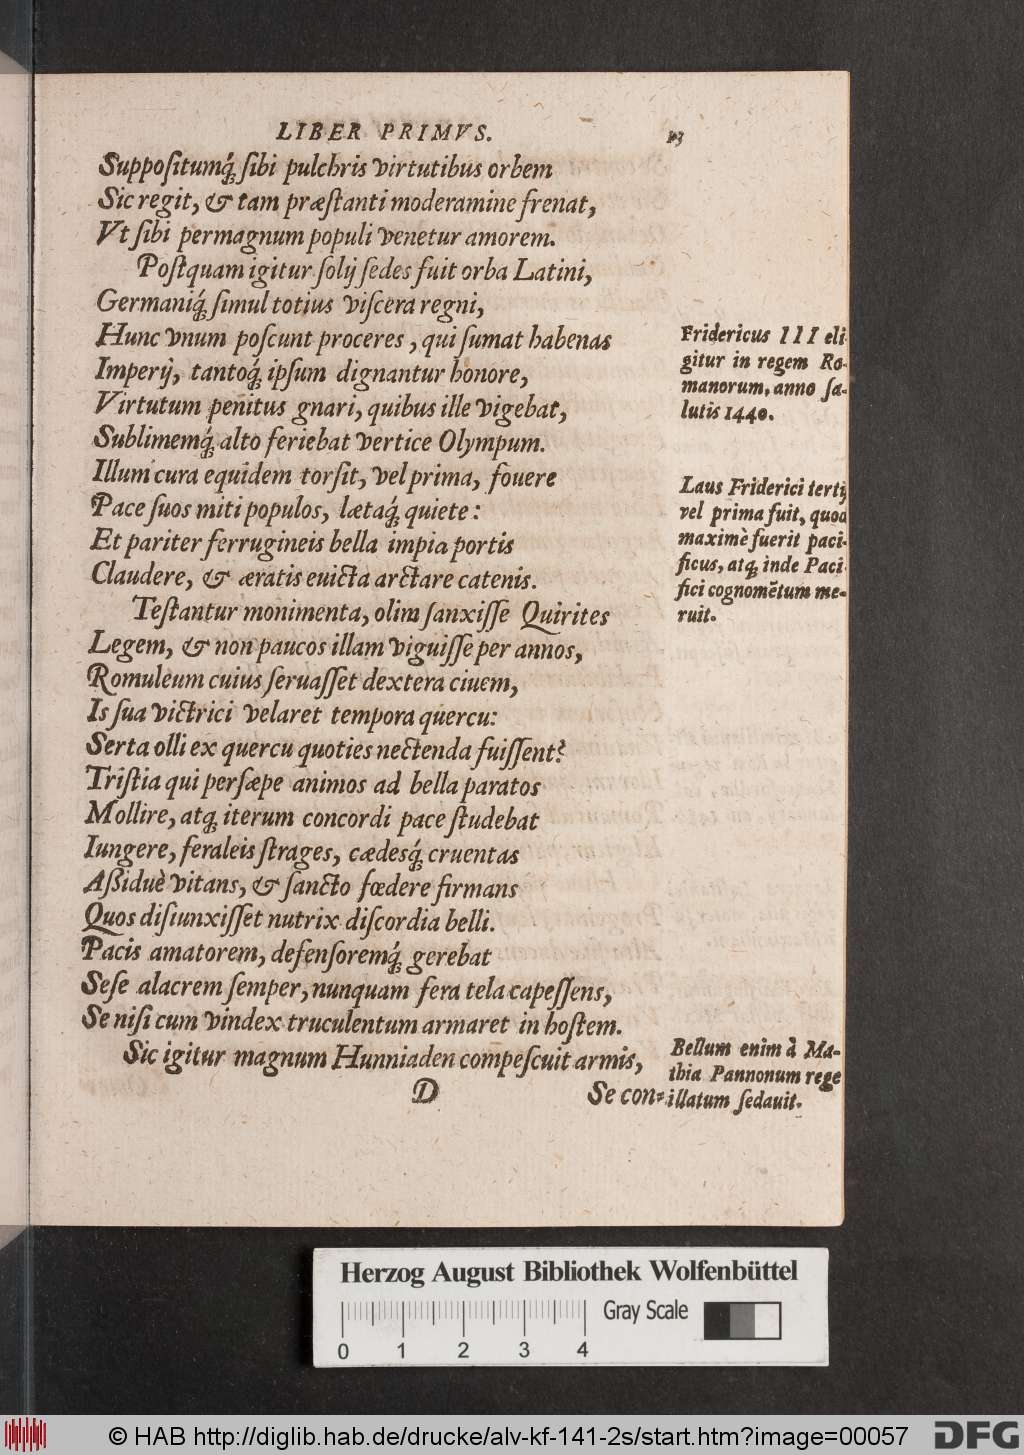 LIBER PRIMVS. 13
Suppoſitumq́; ſibi pulchris virtutibus orbem
Sic regit, & tam præſtanti moderamine frenat,
Vt ſibi permagnum populi venetur amorem.
Poſtquam igitur ſolij ſedes fuit orba Latini,
Germaniq́; ſimul totius viſcera regni,
Hunc vnum poſcunt proceres, qui ſumat habenas
Imperij, tantoq́; ipſum dignantur honore,
Virtutum penitus gnari, quibus ille vigebat,
Sublimemq́; alto feriebat vertice Olympum.
Illum cura equidem torſit, vel prima, fouere
Pace ſuos miti populos, lætaq́; quiete:
Et pariter ferrugineis bella impia portis
Claudere, & æratis euicta arctare catenis.
Teſtantur monimenta, olim ſanxiſſe Quirites
Legem, & non paucos illam viguiſſe per annos,
Romuleum cuius ſeruaſſet dextera ciuem,
Is ſua victrici velaret tempora quercu:
Serta olli ex quercu quoties nectenda fuiſſent?
Triſtia qui perſæpe animos ad bella paratos
Mollire, atq; iterum concordi pace ſtudebat
Iungere, feraleis ſtrages, cædesq́; cruentas
Aßiduè vitans, & ſancto fœdere firmans
Quos diſiunxiſſet nutrix diſcordia belli.
Pacis amatorem, defenſoremq́; gerebat
Seſe alacrem ſemper, nunquam fera tela capeſſens,
Se niſi cum vindex truculentum armaret in hoſtem.
Sic igitur magnum Hunniaden compeſcuit armis,
D Se con-
Fridericus III eli-
gitur in regem Ro-
manorum, anno ſa-
lutis 1440.
Laus Friderici tertij
vel prima fuit, quod
maximè fuerit paci-
ficus, atq; inde Paci-
fici cognomẽtum me-
ruit.
Bellum enim à Ma-
thia Pannonum rege
illatum ſedauit.
Herzog August Bibliothek Wolfenbüttel
Gray Scale
0 1 2 3 4
© HAB http://diglib.hab.de/drucke/alv-kf-141-2s/start.htm?image=00057
DFG